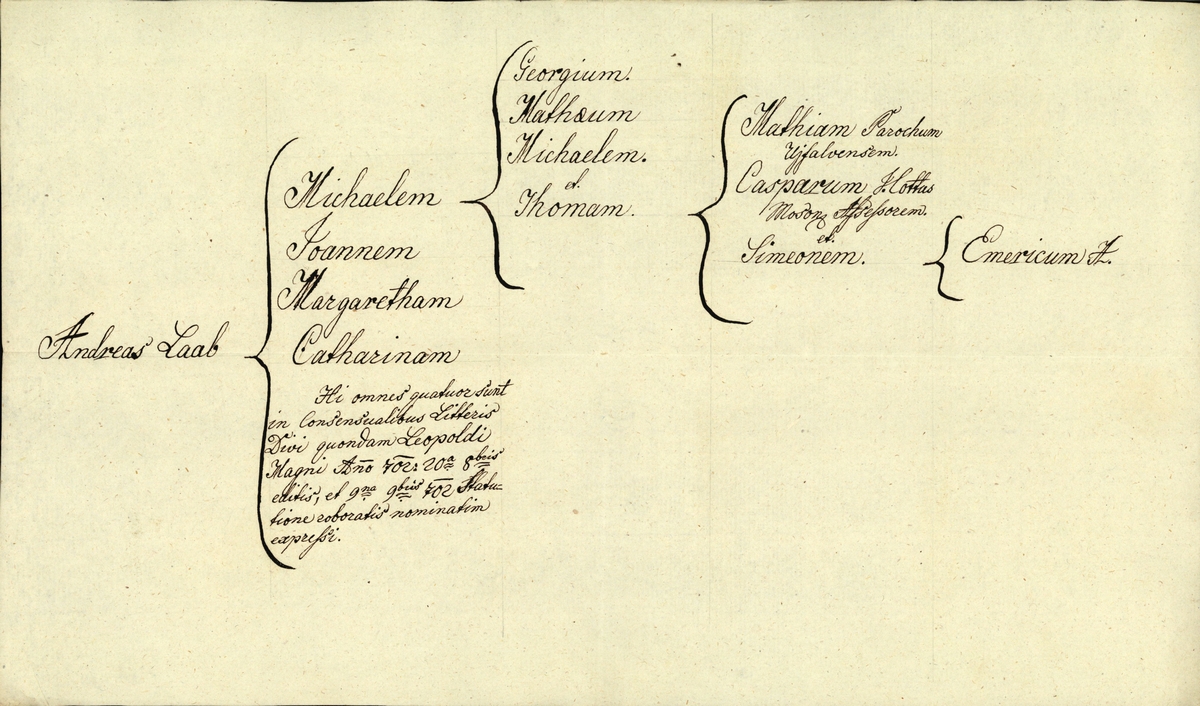 Andreas Laab
Michaelem
Joannem
Margaretham
Catharinam
Hi omnes quatuor sunt
in Consensualibus Litteris
Divi quondam Leopoldi
Magni Ano 702: 20a 8bris
editis, et 9na 9bris 702 Statu=
tione roboratis nominatim
expressi.
Georgium.
Mathæum
Michaelem.
et
Thomam.
Mathiam Parochum
Ujfalvensem.
Casparum I. Cottus
Moson Assessorem.
et
Simeonem.
Emericum A.